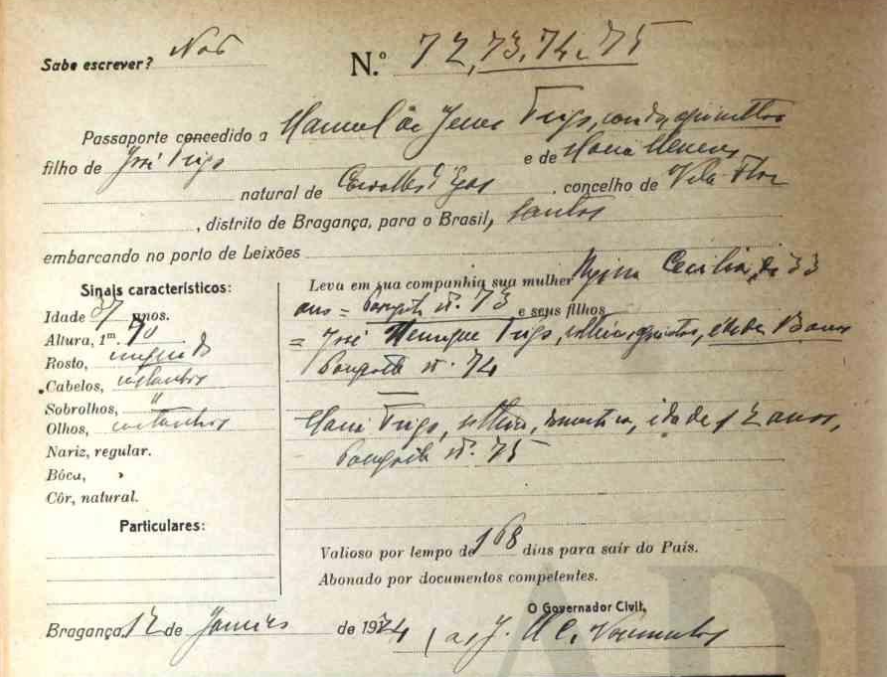 Sabe escrever? Não N.º 72, 73, 74 e 75
Passaporte concedido a Manuel de Jesus Trigo, casado,
filho de José Trigo e de Maria
natural de Carvalho d'Egas, concelho de Vila Flor
, distrito de Bragança, para o Brasil, Santos
embarcando no porto de Leixões
Sinais característicos:
Idade 37 anos.
Altura, 1m. 70
Rosto, comprido
Cabelos, castanhos
Sobrolhos, "
Olhos, castanhos
Nariz, regular.
Bôca, "
Côr, natural.
Particulares:
Leva em sua companhia sua mulher Cecilia, de 33
anos = Passaporte nº. 73 e seus filhos
= José Henrique Trigo, solteiro, idade 13 anos
Passaporte nº. 74
Maria Trigo, solteira, domestica, idade 12 anos,
Passaporte nº. 75
Valioso por tempo de 168 dias para saír do País.
Abonado por documentos competentes.
O Governador Civil,
Bragança, 12 de Janeiro de 1924 (a) J.
AD